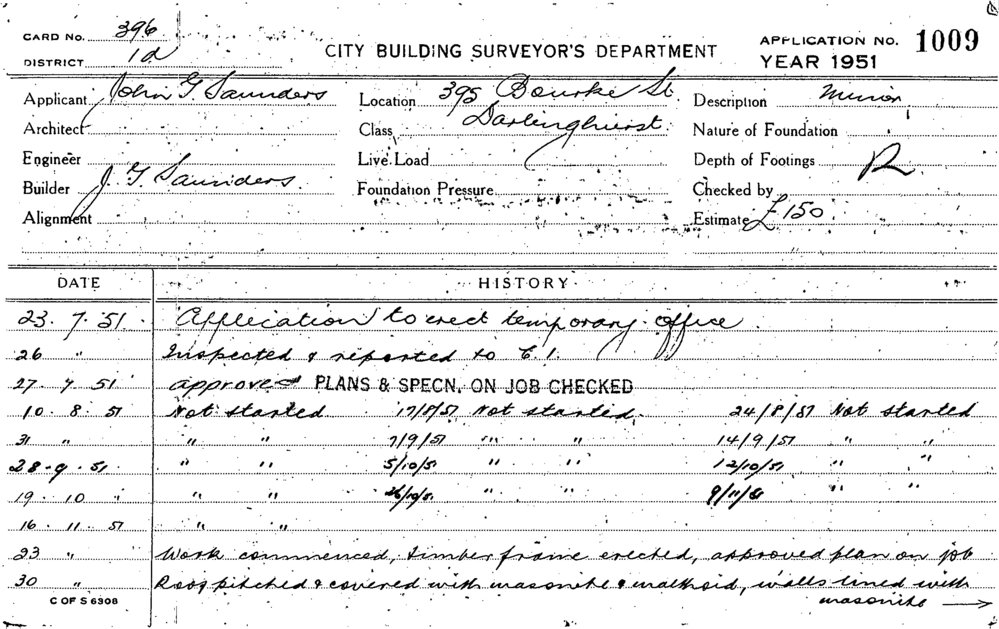 CARD NO. 396
DISTRICT 1d
CITY BUILDING SURVEYOR'S DEPARTMENT
APPLICATION NO. 1009
YEAR 1951
Applicant John G Saunders
Location 395 Bourke St
Darlinghurst.
Description Minor
Architect
Class
Nature of Foundation
Engineer
Live Load
Depth of Footings
Builder J. G. Saunders.
Foundation Pressure
Checked by
Alignment
Estimate £150
DATE HISTORY
23. 7. 51. Application to erect temporary office
26 " Inspected & reported to C. I.
27. 7. 51 approved PLANS & SPECN. ON JOB CHECKED
10. 8. 51 Not started 17/8/51 Not started. 24/8/51 Not started
31 " " " 7/9/51 " " 14/9/51 " "
28. 9. 51. " " 5/10/51 " " 12/10/51 " "
19. 10 " " " 26/10/51 " " 9/11/51 " "
16. 11. 51 " "
23 " Work commenced, timber frame erected, approved plan on job
30 " Roof pitched & covered with masonite & malthoid, walls lined with
masonite →
C OF S 6308